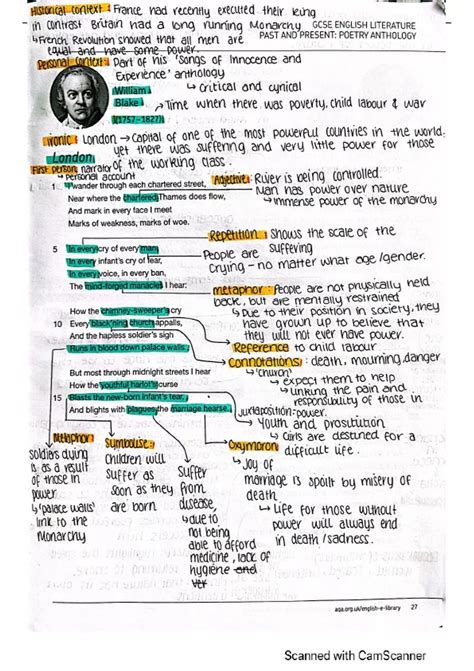 Historical context : France had recently executed their king
in contrast Britain had a long running Monarchy
GCSE ENGLISH LITERATURE
↳French Revolution showed that all men are
PAST AND PRESENT: POETRY ANTHOLOGY
equal and have some power.
Personal Context : Part of his 'Songs of Innocence and
Experience' anthology
↳ Critical and cynical
William
Blake
(1757–1827)
→ Time when there was poverty, child labour & war
Ironic : London → Capital of one of the most powerful countries in the world,
yet there was suffering and very little power for those
of the working class.
London
First person narrator
↳ Personal account
Adjective : River is being controlled.
1 I wander through each chartered street,
Man has power over nature
Near where the chartered Thames does flow,
↳ immense power of the monarchy
And mark in every face I meet
Marks of weakness, marks of woe.
Repetition : Shows the scale of the
suffering
5 In every cry of every man,
People are
In every infant's cry of fear,
Crying – no matter what age/gender.
In every voice, in every ban,
The mind-forged manacles I hear:
metaphor : People are not physically held
back, but are mentally restrained
How the chimney-sweeper's cry
↳ Due to their position in society, they
10 Every black'ning church appalls,
have grown up to believe that
they will not ever have power.
And the hapless soldier's sigh
Reference to child labour
Runs in blood down palace walls.
Connotations : death, mourning, danger
↳ 'church'
But most through midnight streets I hear
↳ expect them to help
How the youthful harlot's curse
↳ linking the pain and
responsibility of those in
power.
15 Blasts the new-born infant's tear,
And blights with plagues the marriage hearse.
Juxtaposition:
↳ Youth and prostitution
↳ Girls are destined for a
difficult life.
Metaphor:
Symbolise:
Oxymoron:
soldiers dying
is as a result
of those in
power
↳ 'palace walls'
link to the
Monarchy
Children will
suffer as
soon as they
are born
Suffer
from
disease,
↳ due to
not being
able to afford
medicine, lack of
hygiene
↳ Joy of
marriage is spoilt by misery of
death
↳ Life for those without
power will always end
in death/sadness.
aqa.org.uk/english-e-library 27
Scanned with CamScanner